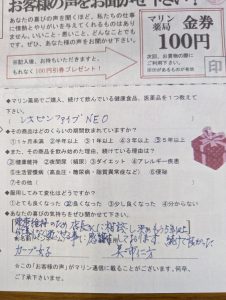 お客様の声をお聞かせ下さい!
あなたの喜びの声を聞くほど、私たちの仕事
に情熱とやりがいを与えてくれるものはあり
ません。いいこと・悪いこと、どんなことでも
です。ぜひ、あなた様の声をお聞かせ下さい。
当記入後、お持ちいただきますと、
もれなく100円引券プレゼント!
マリン薬局 金券
100円
次回、お買物の際に
ご利用下さい。
印
◆マリン薬局でご購入、続けて飲んでいる健康食品、医薬品を1つ教えて
下さい。
レスセンアクイブNEO
◆その商品はどのくらいの期間飲まれていますか?
①1ヶ月未満 ②半年以上 ③1年以上 ④3年以上 ⑤5年以上
◆また、その商品を飲み始めた理由、続けている理由は?
①健康維持 ②夜間頻尿(頻尿) ③ダイエット ④アレルギー疾患
⑤生活習慣病(高血圧・糖尿病・脂質異常症など) ⑥便秘
⑦その他
◆服用してみて変化はどうですか?
①とても良くなった ②良くなった ③少し良くなった ④変わらない
◆あなたの喜びの気持ちをぜひ聞かせて下さい。
健康維持のため店長に相談し
感謝しております 続けて
カープ女子 呉市 仁方
☆この「お客様の声」がマリン通信に載ることがございます。何卒、
ご了承下さいませ。